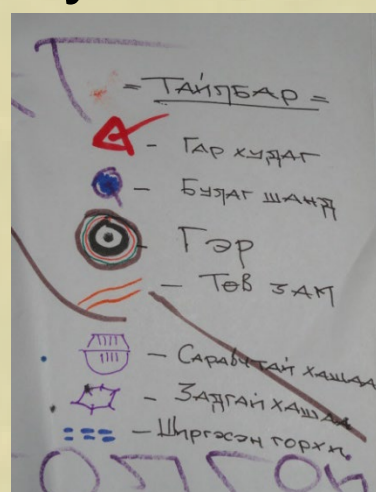 = ТАЙЛБАР =
- ГАР ХУДАГ
- БУЛАГ ШАНД
- Гэр
- Төв ЗАМ
- Саравчтай хашаа
- Задгай хашаа
- Ширгэсэн горхи.